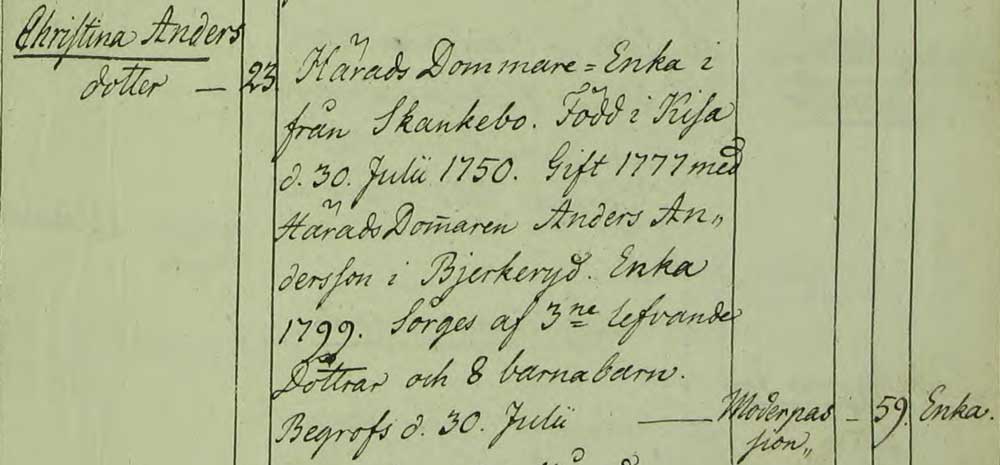 Christina Anders
dotter — 23. Härads Dommare = Enka i
från Skankebo. Född i Kisa
d. 30. Julii 1750. Gift 1777 med
Härads Dom̄aren Anders An„
dersson i Bjerkeryd. Enka
1799. Sörges af 3ne lefvande
Döttrar och 8 barnabarn.
Begrofs d. 30. Julii — Moderpas — 59. Enka.
sion„